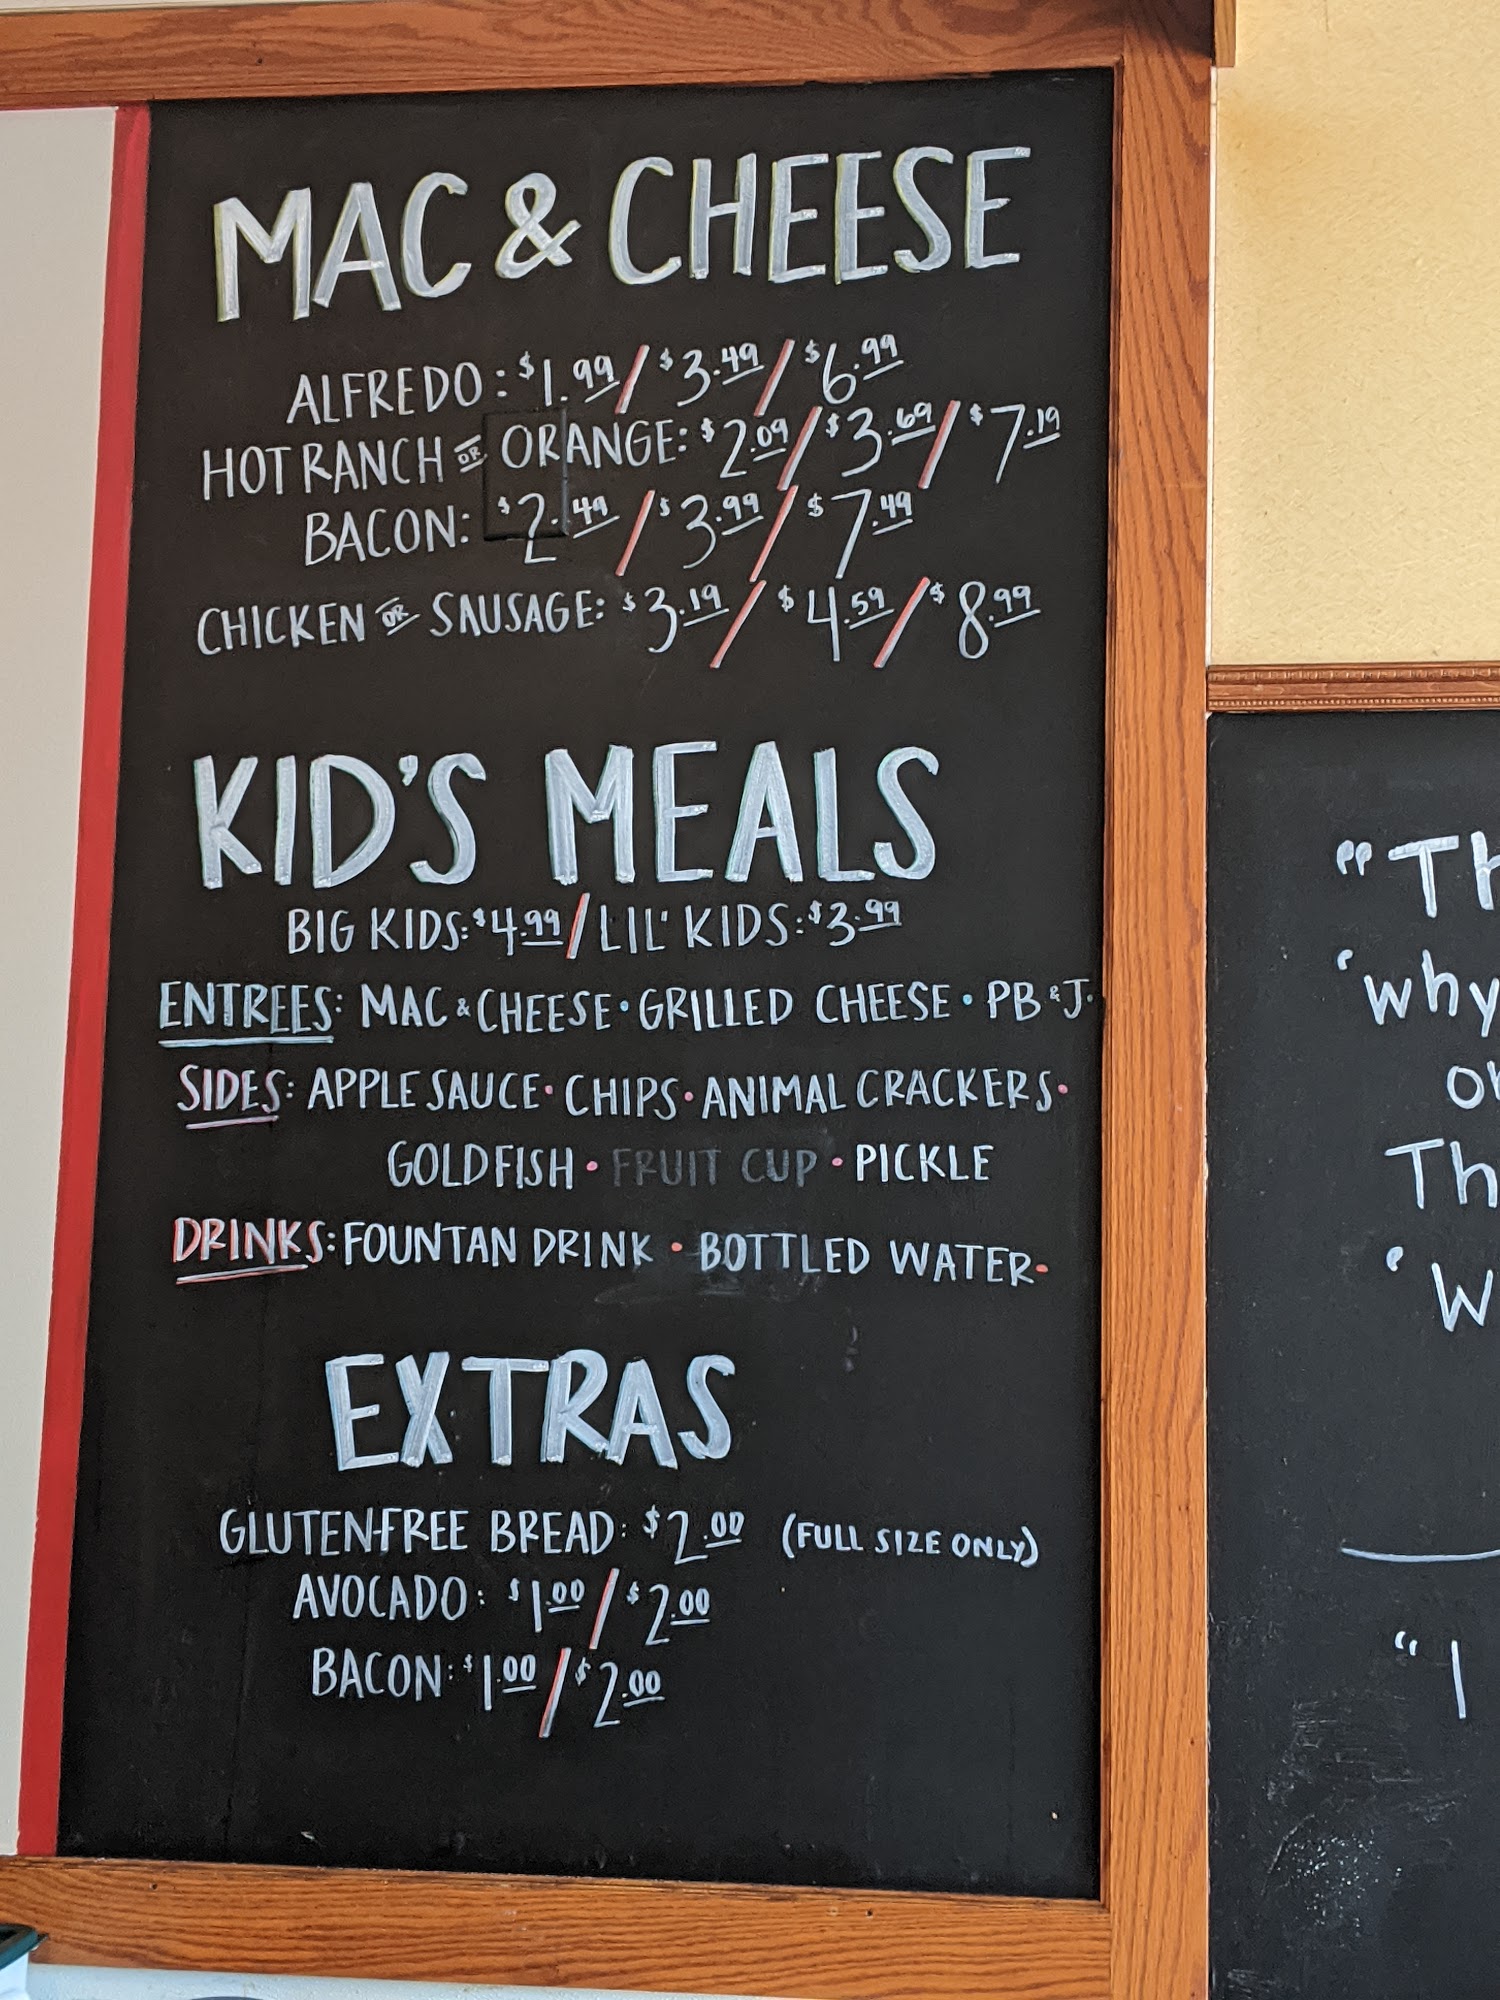 MAC & CHEESE
ALFREDO: $1.99 / $3.49 / $6.99
HOT RANCH OR ORANGE: $2.09 / $3.69 / $7.19
BACON: $2.49 / $3.99 / $7.49
CHICKEN OR SAUSAGE: $3.19 / $4.59 / $8.99
KID'S MEALS
BIG KIDS: $4.99 / LIL' KIDS: $3.99
ENTREES: MAC & CHEESE • GRILLED CHEESE • PB & J •
SIDES: APPLE SAUCE • CHIPS • ANIMAL CRACKERS •
GOLDFISH • FRUIT CUP • PICKLE
DRINKS: FOUNTAN DRINK • BOTTLED WATER •
EXTRAS
GLUTEN-FREE BREAD: $2.00 (FULL SIZE ONLY)
AVOCADO: $1.00 / $2.00
BACON: $1.00 / $2.00
"Th
'why
or
Th
'W
"I